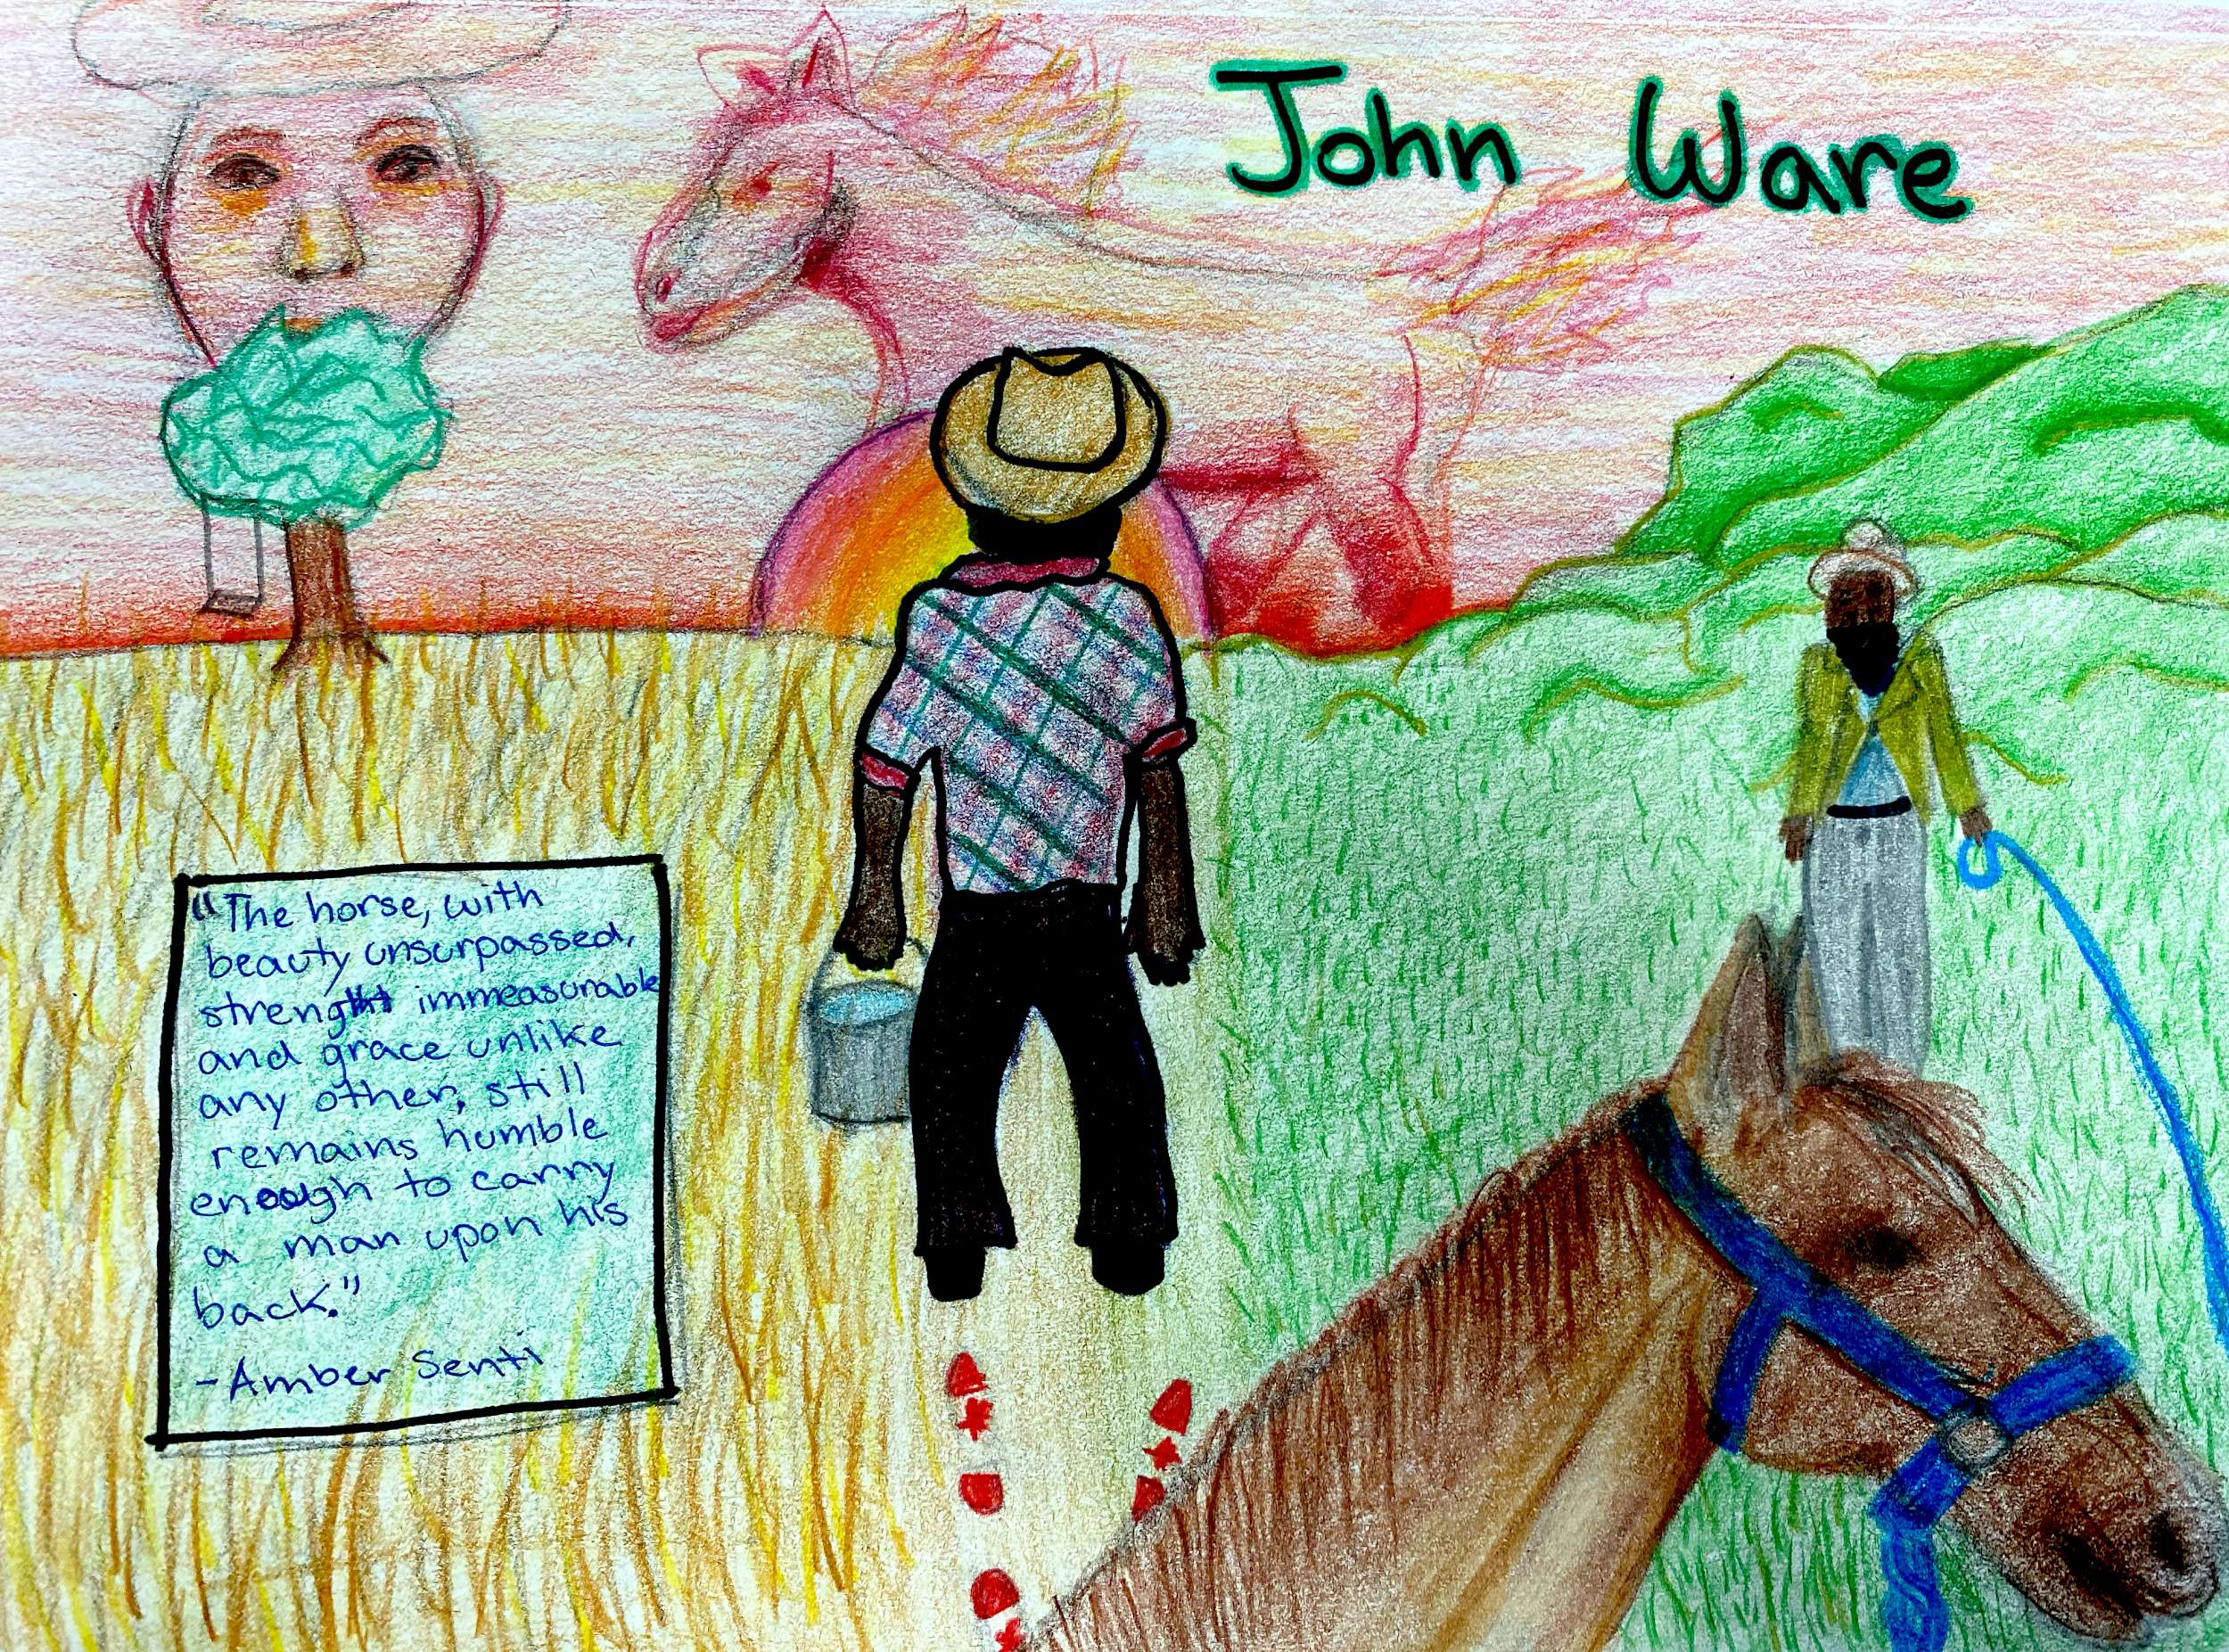 John Ware
"The horse, with
beauty unsurpassed,
strength immeasurable
and grace unlike
any other, still
remains humble
enough to carry
a man upon his
back."
-Amber Senti